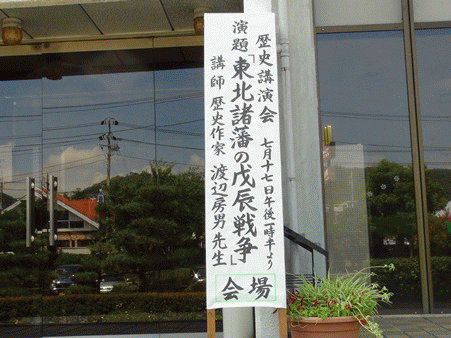 歴史講演会 七月十七日午後一時半より
演題「東北諸藩の戊辰戦争」
講師 歴史作家 渡辺房男先生
会場